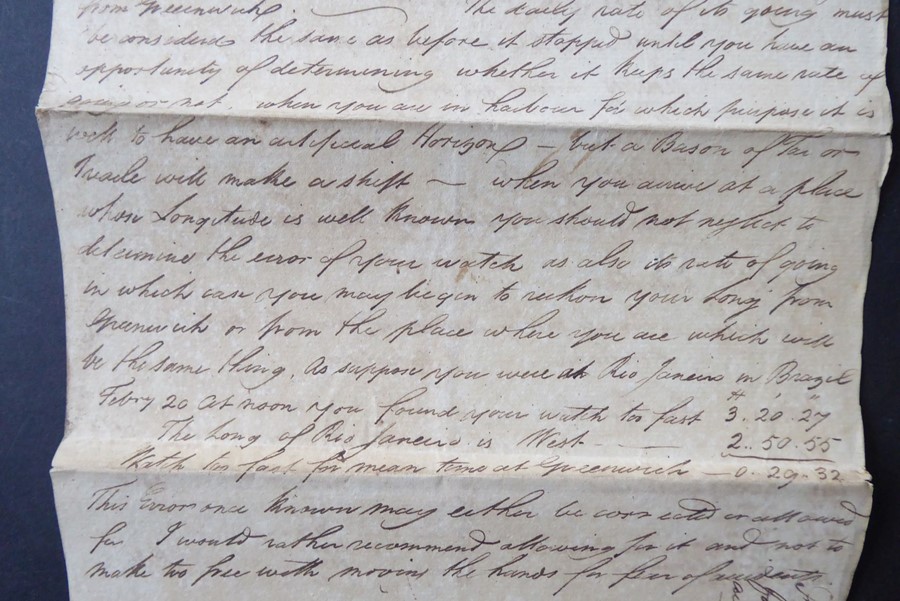 from Greenwich. — The daily rate of its going must
be considered the same as before it stopped until you have an
opportunity of determining whether it keeps the same rate of
going or not, when you are in harbour for which purpose it is
well to have an artificial Horizon — but a Bason of Tar or
Treacle will make a shift — when you arrive at a place
whose Longitude is well known you should not neglect to
determine the error of your watch as also its rate of going
in which case you may begin to reckon your Long from
Greenwich or from the place where you are which will
be the same thing. as suppose you were at Rio Janeiro in Brazil
Febry 20 at noon you found your watch too fast H 3 . 20 . 27
The Long of Rio Janeiro is West — 2 . 50 . 55
Watch too fast for mean time at Greenwich — 0 . 29 . 32
This Error once known may either be corrected or allowed
for I would rather recommend allowing for it and not to
make too free with moving the hands for fear of accidents